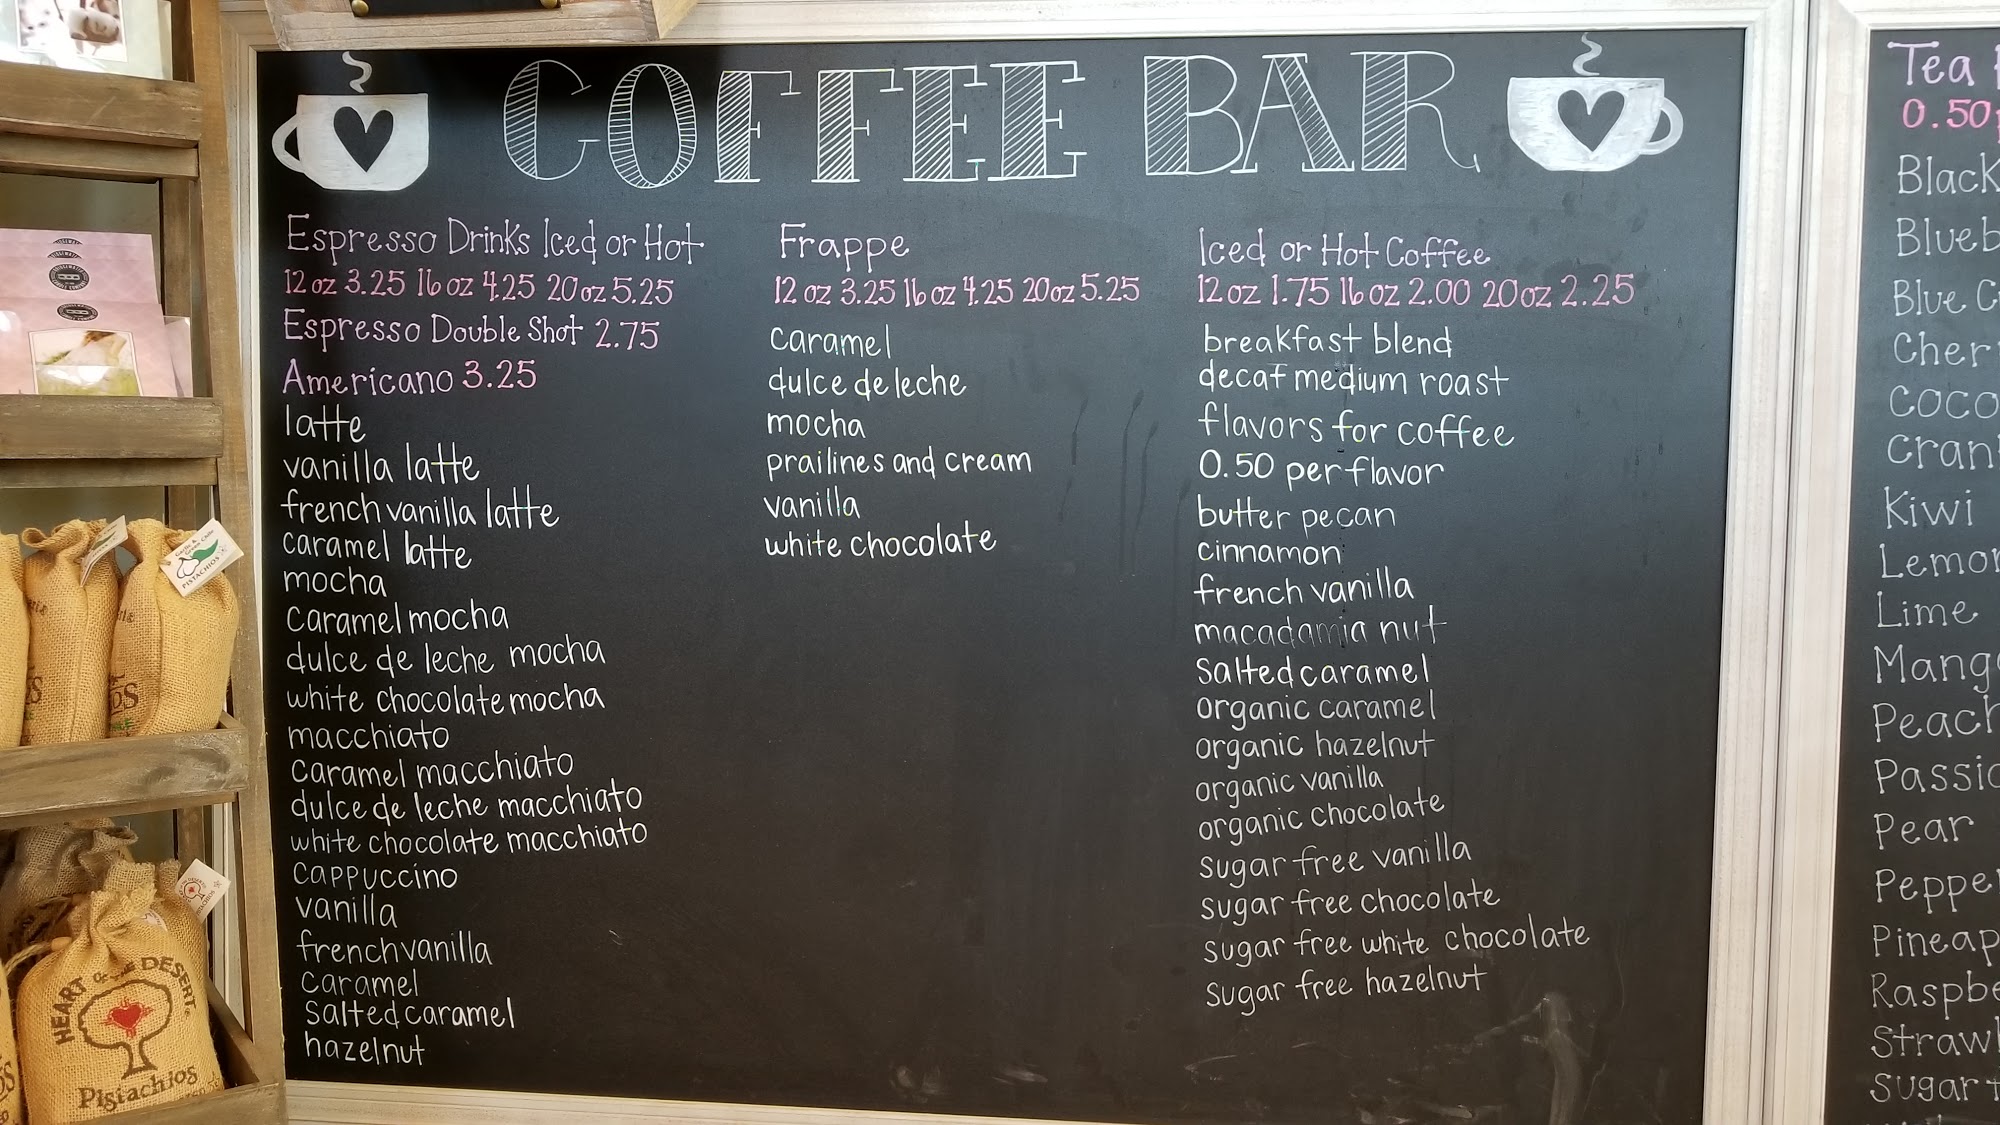 COFFEE BAR
Espresso Drinks Iced or Hot
12 oz 3.25 16 oz 4.25 20 oz 5.25
Espresso Double Shot 2.75
Americano 3.25
latte
vanilla latte
french vanilla latte
caramel latte
mocha
caramel mocha
dulce de leche mocha
white chocolate mocha
macchiato
caramel macchiato
dulce de leche macchiato
white chocolate macchiato
cappuccino
vanilla
french vanilla
caramel
salted caramel
hazelnut
Frappe
12 oz 3.25 16 oz 4.25 20 oz 5.25
caramel
dulce de leche
mocha
prailines and cream
vanilla
white chocolate
Iced or Hot Coffee
12 oz 1.75 16 oz 2.00 20 oz 2.25
breakfast blend
decaf medium roast
flavors for coffee
0.50 per flavor
butter pecan
cinnamon
french vanilla
macadamia nut
salted caramel
organic caramel
organic hazelnut
organic vanilla
organic chocolate
sugar free vanilla
sugar free chocolate
sugar free white chocolate
sugar free hazelnut
Tea
0.50
Black
Blueb
Blue C
Cher
Coco
Cran
Kiwi
Lemon
Lime
Mang
Peach
Passio
Pear
Peppe
Pineap
Raspbe
Straw
Sugar
Garlic &
Green Chile
PISTACHIOS
HEART OF THE DESERT
Pistachios